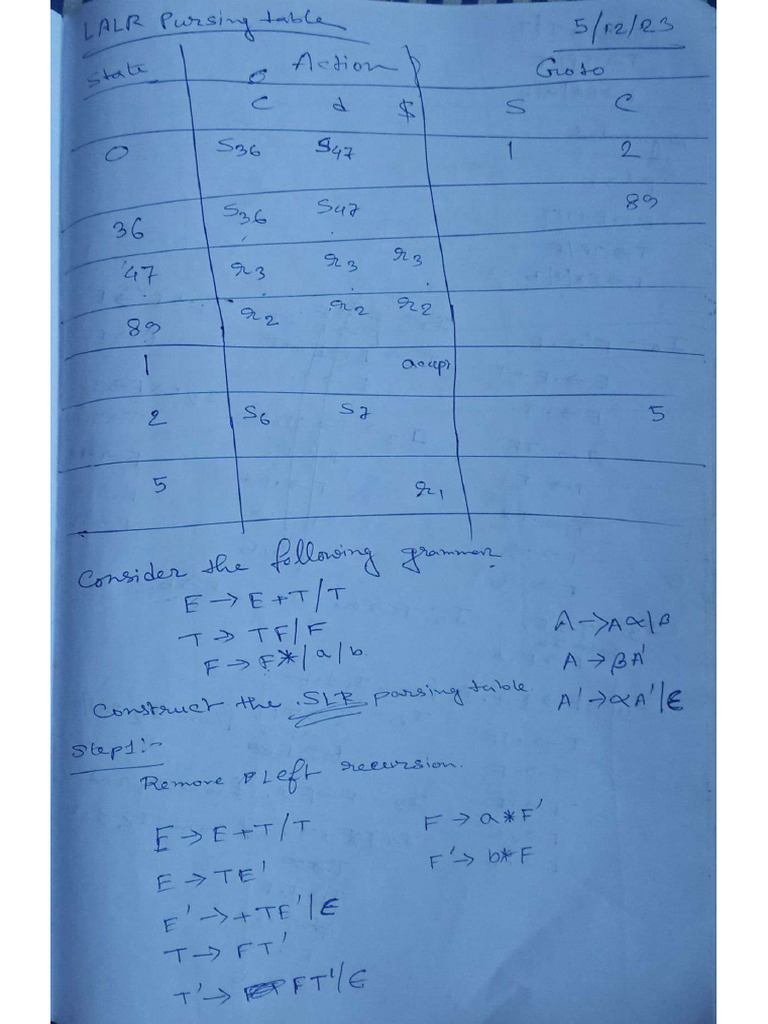 LALR Pursing table
5/12/23
State Action Goto
C d $ S C
0 S36 S47 1 2
36 S36 S47 89
47 r3 r3 r3
89 r2 r2 r2
1 accept
2 S6 S7 5
5 r1
Consider the following grammar
E → E + T / T
T → TF / F
F → F* / a / b.
A → Aα | β
A → βA'
A' → αA' | ε
Construct the SLR parsing table
Step1:-
Remove Left recursion.
E → E + T / T
E → TE'
E' → +TE' | ε
T → FT'
T' → FT' / ε
F → a*F'
F' → b*F